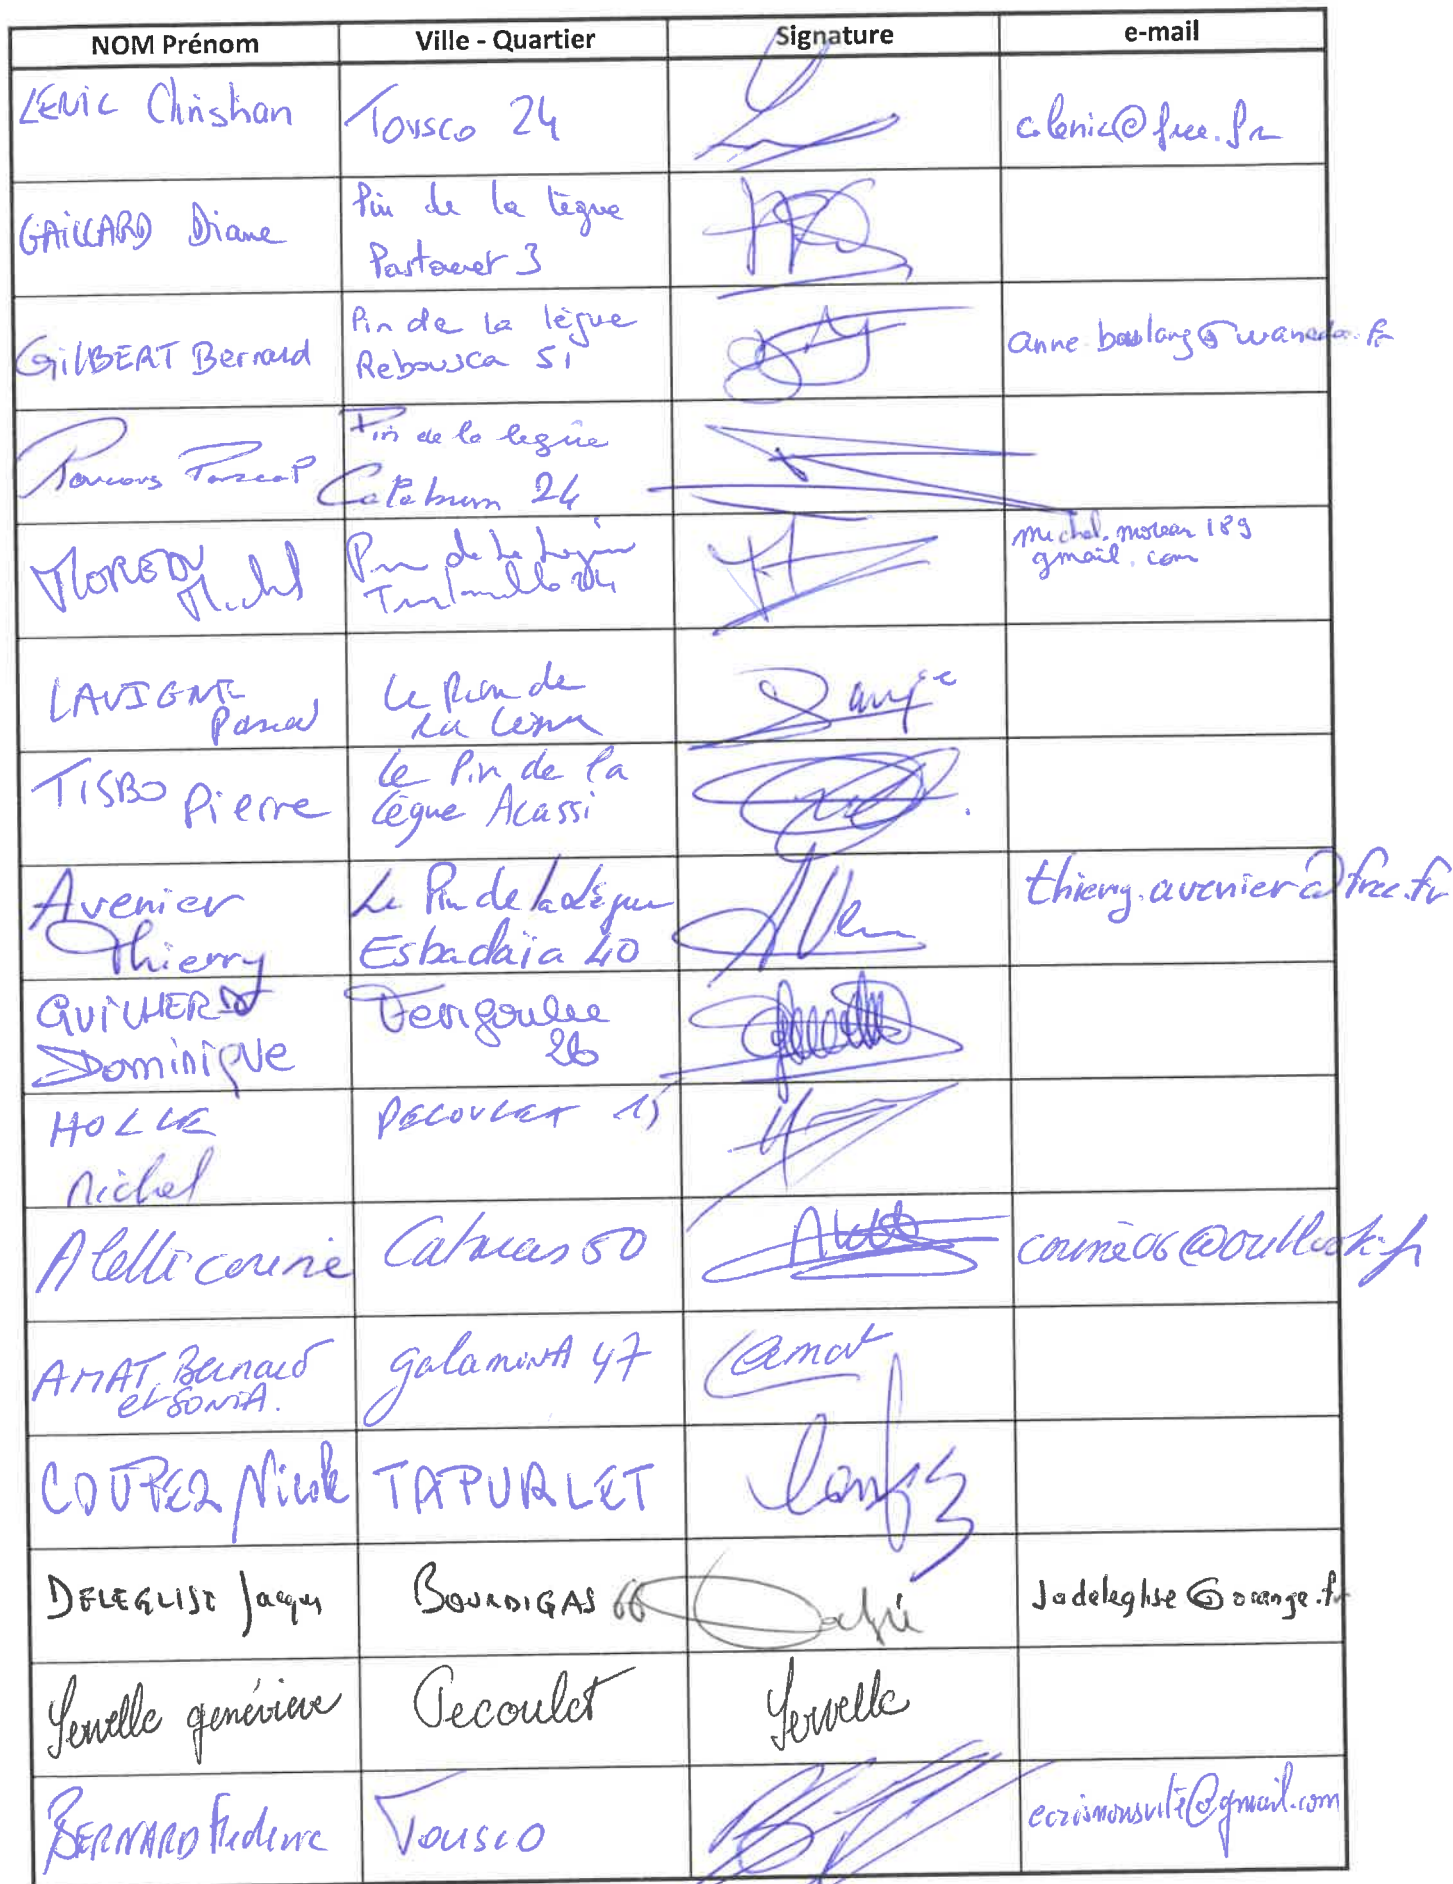 NOM Prénom Ville - Quartier Signature e-mail
LENIC Christian Tousco 24 c.lenic@free.fr
GAILLARD Diane Pin de la lègue
Pastouret 3
GILBERT Bernard Pin de la lègue
Rebousca 51 anne.boulang@wanadoo.fr
Pascal Pin de la legue
24
MOREAU
Michel Pin de la Legue
24 michel.moreau189
gmail.com
LAVIGNE
Pascal Le Pin de
La Legue
TISBO Pierre Le Pin de la
Lègue Acassi
Avenier
Thierry Le Pin de la Lègue
Esbadaïa 40 thierry.avenier@free.fr
GUILHERD
Dominique Ferigoulee
26
HOLLE
Michel PECOULET 15
Alelli corine Cabucas 50 corine06@outlook.fr
AMAT Bernard
et SONIA. galaminA 47 Amat
COUPEZ Nicole TAPURLET
DELEGLISE Jacques BOURDIGAS 66 Jadeleglise@orange.fr
Servelle geneviève Pecoulet Servelle
BERNARD Frederic Tousco ecrismonsvite@gmail.com